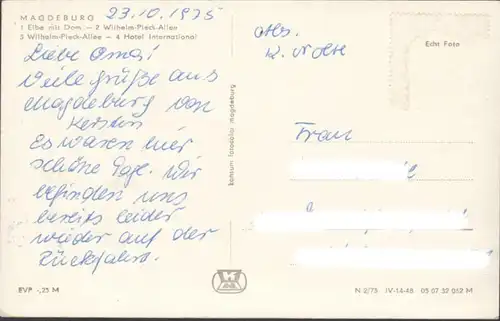 MAGDEBURG
23.10.1975
1 Elbe mit Dom — 2 Wilhelm-Pieck-Allee
3 Wilhelm-Pieck-Allee — 4 Hotel International
Liebe Oma!
Viele Grüße aus
Magdeburg von
Kerstin
Es waren hier
schöne Tage. Wir
befinden uns
bereits leider
wieder auf der
Rückfahrt.
EVP -,25 M
Abs.
K. Nolte
Echt Foto
Frau
N 2/75 IV-14-48 05 07 32 062 M